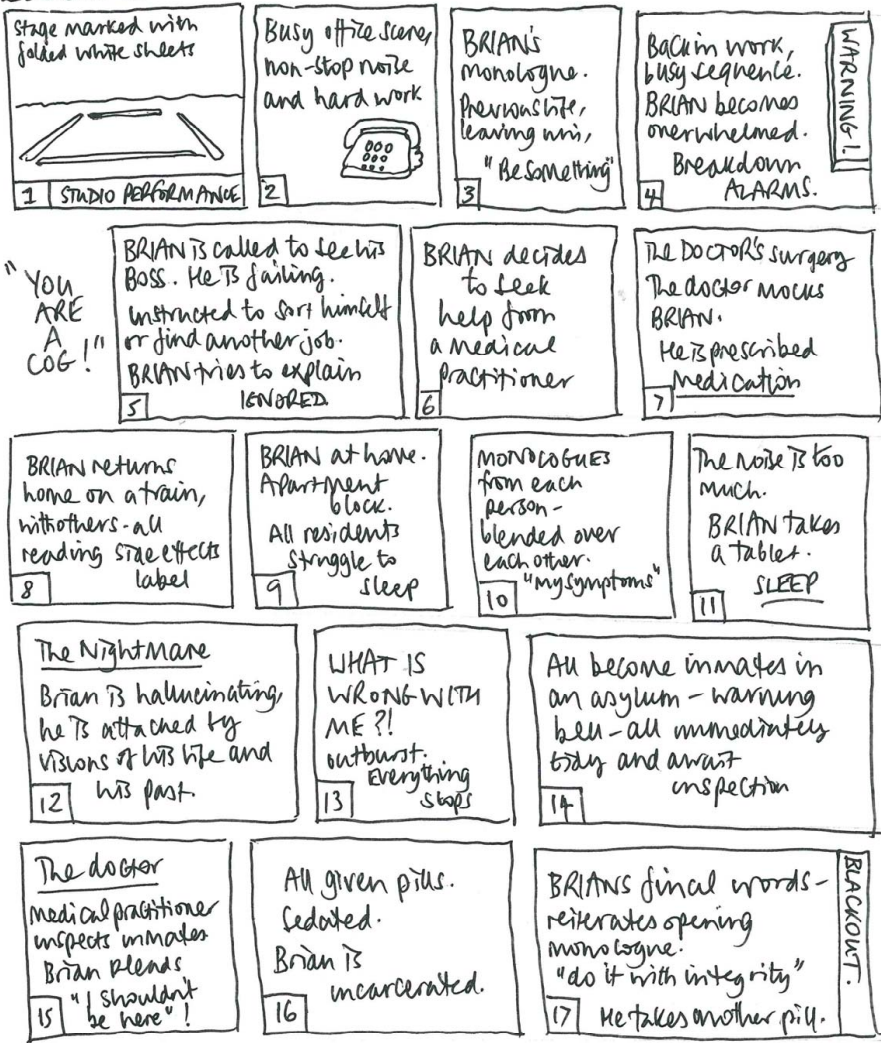 Stage marked with
folded white sheets
1 STUDIO PERFORMANCE
Busy office scene,
non-stop noise
and hard work
2
BRIAN'S
monologue.
Previous life,
leaving uni,
"Be something"
3
Back in work,
busy sequence.
BRIAN becomes
overwhelmed.
Breakdown
ALARMS.
WARNING!
4
"YOU
ARE
A
COG!"
BRIAN is called to see his
BOSS. He is failing.
instructed to sort himself
or find another job.
BRIAN tries to explain
IGNORED
5
BRIAN decides
to seek
help from
a medical
practitioner
6
The DOCTOR'S surgery
The doctor mocks
BRIAN.
He is prescribed
Medication
7
BRIAN returns
home on a train,
with others - all
reading side effects
label
8
BRIAN at home.
Apartment
block.
All residents
struggle to
sleep
9
MONOLOGUES
from each
person -
blended over
each other.
"My symptoms"
10
The noise is too
much.
BRIAN takes
a tablet.
SLEEP
11
The Nightmare
Brian is hallucinating,
he is attacked by
visions of his life and
his past.
12
WHAT IS
WRONG WITH
ME?!
outburst.
Everything
stops
13
All become inmates in
an asylum - warning
bell - all immediately
tidy and await
inspection
14
The doctor
medical practitioner
inspects inmates
Brian pleads
"I shouldn't
be here"!
15
All given pills.
Sedated.
Brian is
incarcerated.
16
BRIANS final words -
reiterates opening
monologue.
"do it with integrity"
He takes another pill.
17
BLACKOUT.